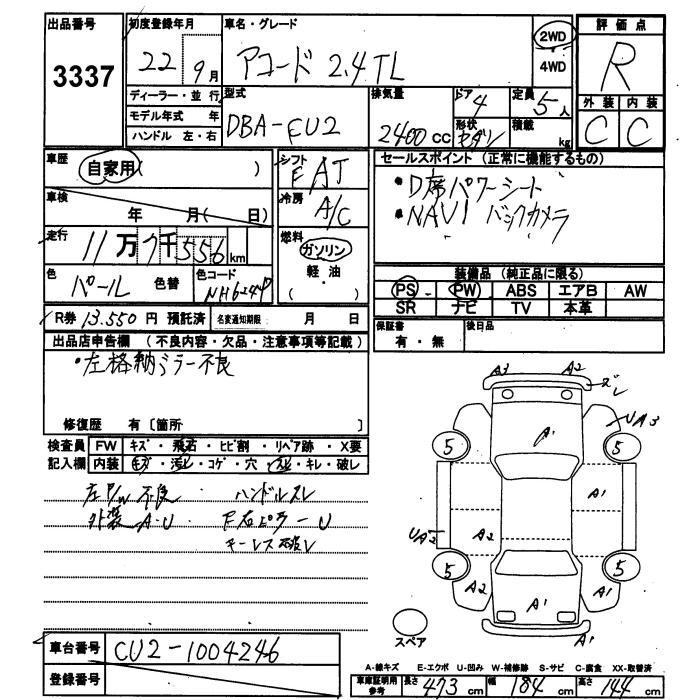 出品番号
3337
初度登録年月
22年 9月
ディーラー・並行
モデル年式 年
ハンドル 左・右
車名・グレード
アコード 2.4TL
2WD
4WD
評価点
R
外装 内装
C C
型式
DBA-CU2
排気量
2400 CC
ドア
4
形状
セダン
定員
5人
積載
kg
車歴
自家用( )
車検
年 月( 日)
走行
11万7千556 km
色
パール
色替
色コード
シフト
FAT
冷房
A/C
燃料
ガソリン
軽・油
( )
セールスポイント (正常に機能するもの)
D席パワーシート
NAVI バックカメラ
装備品 (純正品に限る)
PS PW ABS エアB AW
SR ナビ TV 本革
保証書
有・無
後日品
R券 13,550 円 預託済
名変通知期限 月 日
出品店申告欄 (不良内容・欠品・注意事項等記載)
・左格納ミラー不良
修復歴 有〔箇所 〕
検査員
記入欄
FW キズ・飛石・ヒビ割・リペア跡・X要
内装 キズ・汚レ・コゲ・穴・スレ・キレ・破レ
左P/W不良 ハンドルスレ
外装A・U F右ピラーU
キーレス破レ
A3 A2
ズレ
UA3
A1
5 5
A1
UA2
A2
5 5
A2 A1
A1
スペア
車台番号
CU2-1004246
登録番号
A-線キズ E-エクボ U-凹み W-補修跡 S-サビ C-腐食 XX-取替済
車庫証明用
参考
長さ 473 cm 幅 184 cm 高さ 144 cm